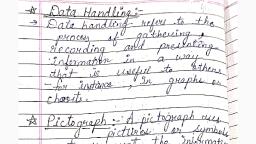 ☆ Data Handling:-
→ Data handling refers to the
process of gathering,
recording and presenting
information in a way
that is useful to others
for instance, in graphs or
charts.
☆ Pictograph:- A pictograph uses
pictures or symbols
to the informati